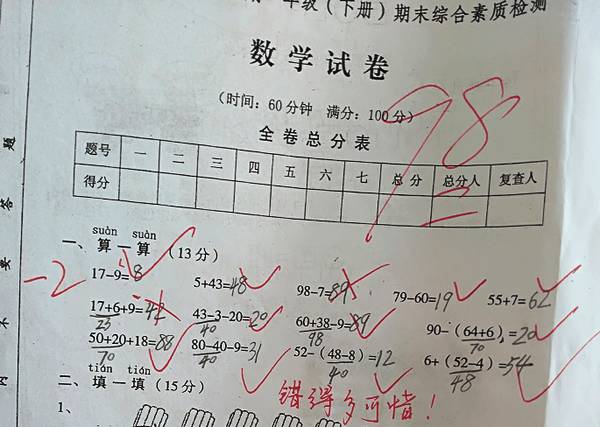 年级（下册）期末综合素质检测
数学试卷
（时间：60分钟 满分：100分）
98
全卷总分表
题号 一 二 三 四 五 六 七 总分 总分人 复查人
得分
suàn suàn
一、算一算（13分）
-2
17-9=8 5+43=48 98-7=89 79-60=19 55+7=62
17+6+9=42 43-3-20=20 60+38-9=89 90-（64+6）=20
23 40 98 70
50+20+18=88 80-40-9=31 52-（48-8）=12 6+（52-4）=54
70 40 40 48
tián tián
二、填一填（15分）
错得多可惜！
1、
题
答
要